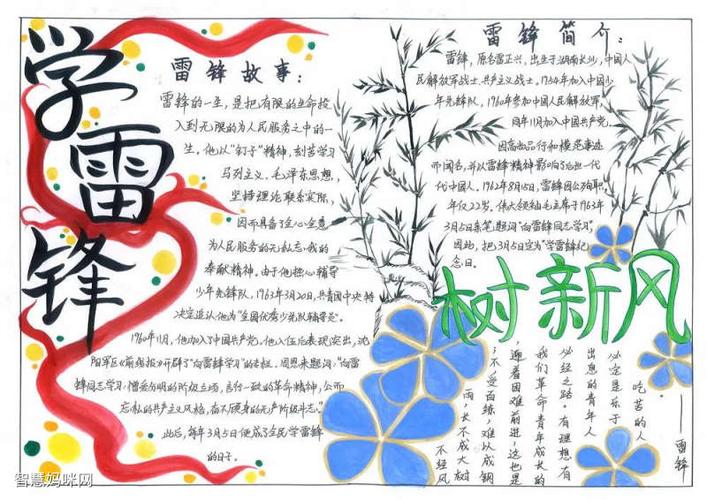 学雷锋
雷锋故事：
雷锋的一生，是把有限的生命投
入到无限的为人民服务之中的一
生。他以“钉子”精神，刻苦学习
马列主义、毛泽东思想，
坚持理论联系实际，
因而具备了全心全意
为人民服务的无私忘我的
奉献精神。由于他热心辅导
少年先锋队，1963年3月20日，共青团中央特
决定追认他为“全国优秀少先队辅导员”。
1960年11月，他加入中国共产党。他入伍后表现突出，沈
阳军区《前线报》开辟了“向雷锋学习”的专栏。周恩来题词：“向雷
锋同志学习，憎爱分明的阶级立场，言行一致的革命精神，公而
忘私的共产主义风格，奋不顾身的无产阶级斗志。”
此后，每年3月5日便成了全民学雷锋
的日子。
雷锋简介：
雷锋，原名雷正兴，出生于湖南长沙，中国人
民解放军战士，共产主义战士，1954年加入中国少
年先锋队，1960年参加中国人民解放军，
同年11月加入中国共产党。
因高尚品行和模范事迹
而闻名，并以雷锋精神影响了后世一代
代中国人。1962年8月15日，雷锋因公殉职，
年仅22岁。伟大领袖毛主席于1963年
3月5日亲笔题词“向雷锋同志学习”。
因此，把3月5日定为“学雷锋纪
念日。
树新风
吃苦的人
必定是乐于
出息的青年人
必经之路。有理想有
我们革命青年成长的
迎着困难前进，这也是
不受百练，难以成钢
雨，长不成大树
不经风
——雷锋
智慧妈咪网